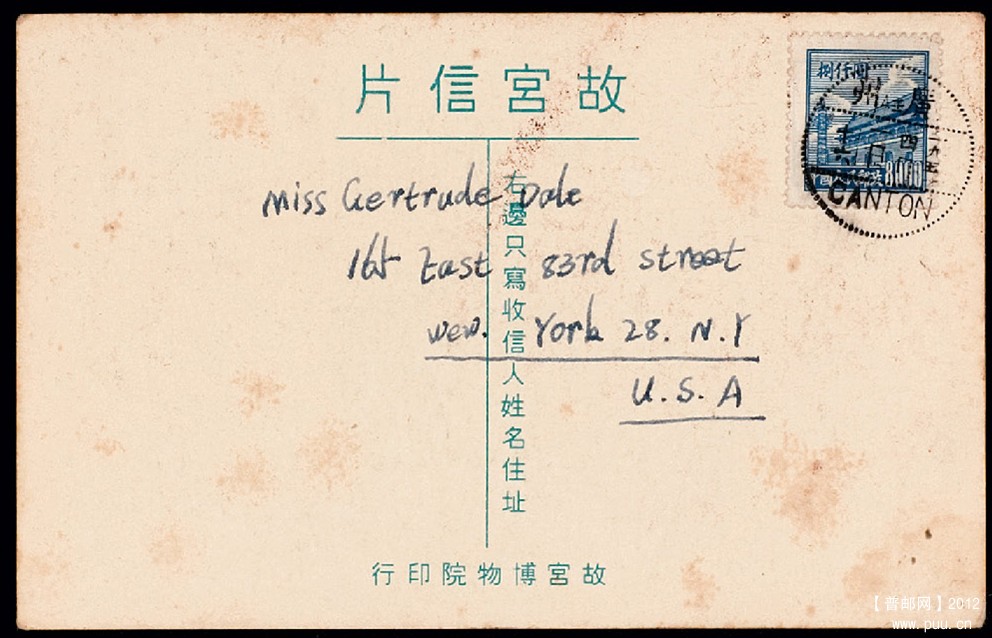 故宮信片
捌仟圓
8000
廣州
CANTON
右邊只寫收信人姓名住址
Miss Gertrude Dale
165 East 83rd street
wew. York 28. N.Y
U.S.A
故宮博物院印行
【普邮网】2012
www.puu.cn